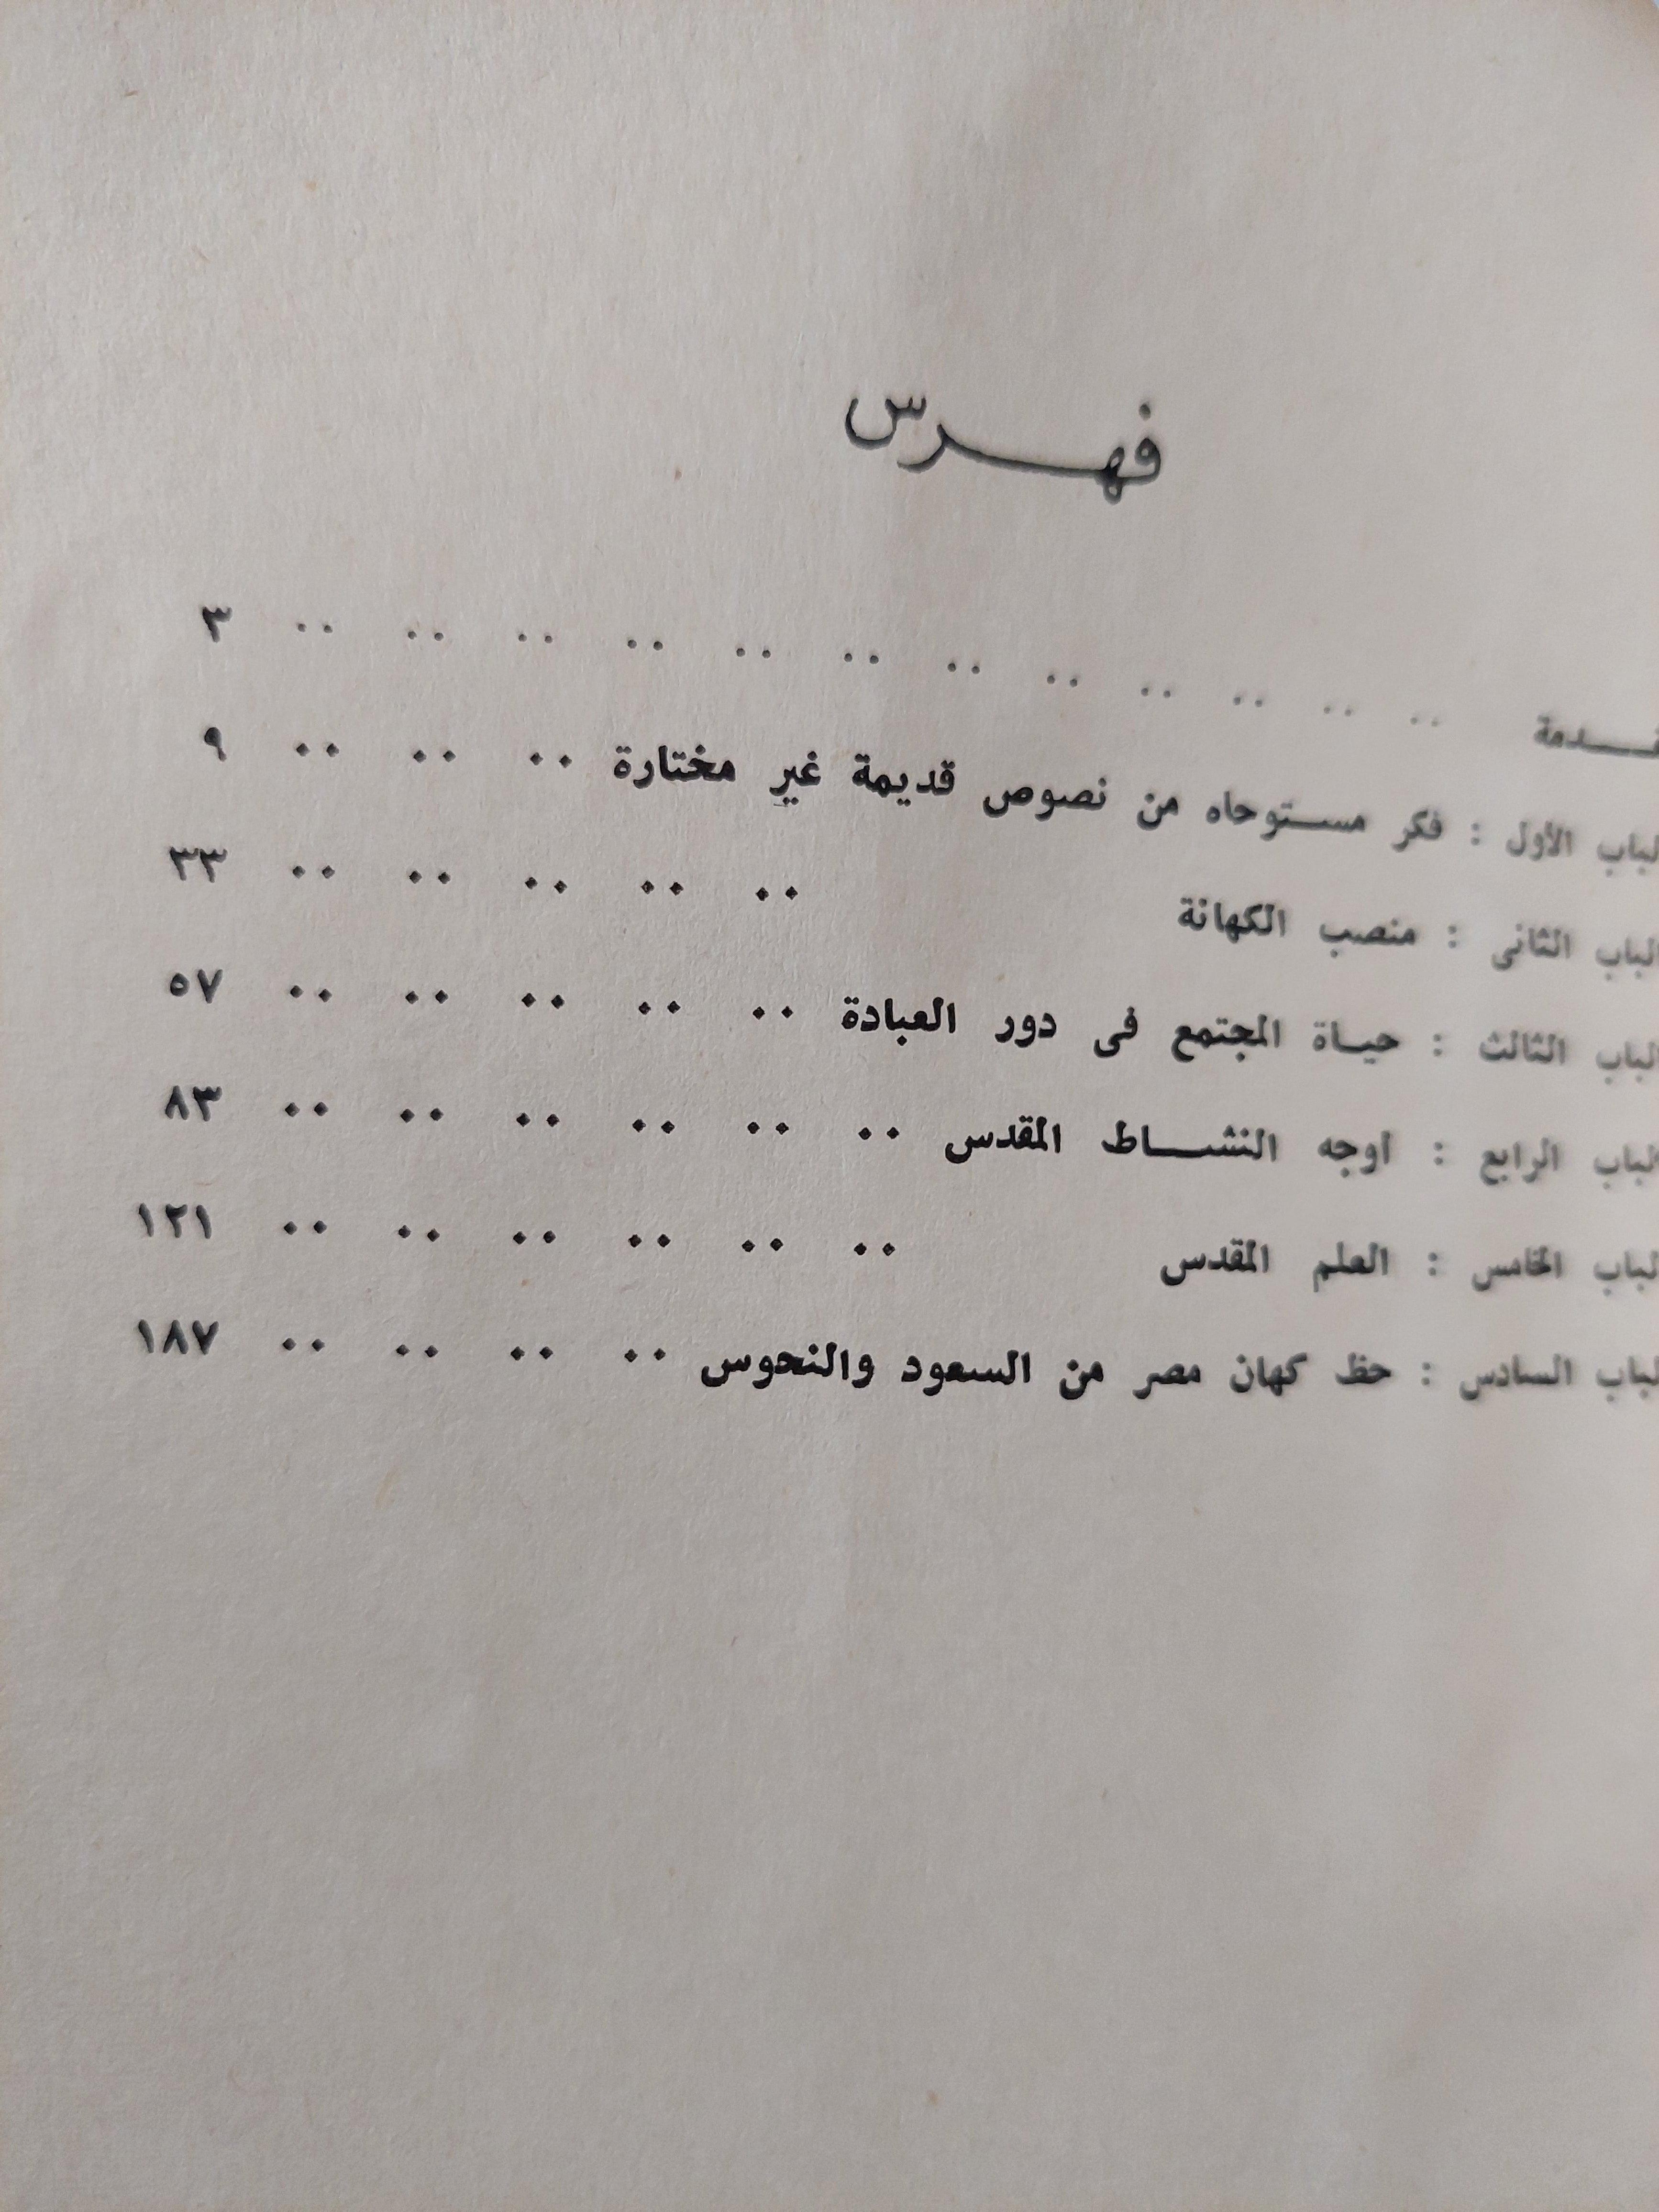 فهرس
مقدمة .. .. .. .. .. .. .. .. .. .. .. .. ٣
الباب الأول : فكر مستوحاه من نصوص قديمة غير مختارة .. .. .. ٩
الباب الثانى : منصب الكهانة .. .. .. .. .. ٣٣
الباب الثالث : حياة المجتمع فى دور العبادة .. .. .. .. .. ٥٧
الباب الرابع : اوجه النشاط المقدس .. .. .. .. .. .. ٨٣
الباب الخامس : العلم المقدس .. .. .. .. .. .. ١٢١
الباب السادس : حظ كهان مصر من السعود والنحوس .. .. .. .. ١٨٧